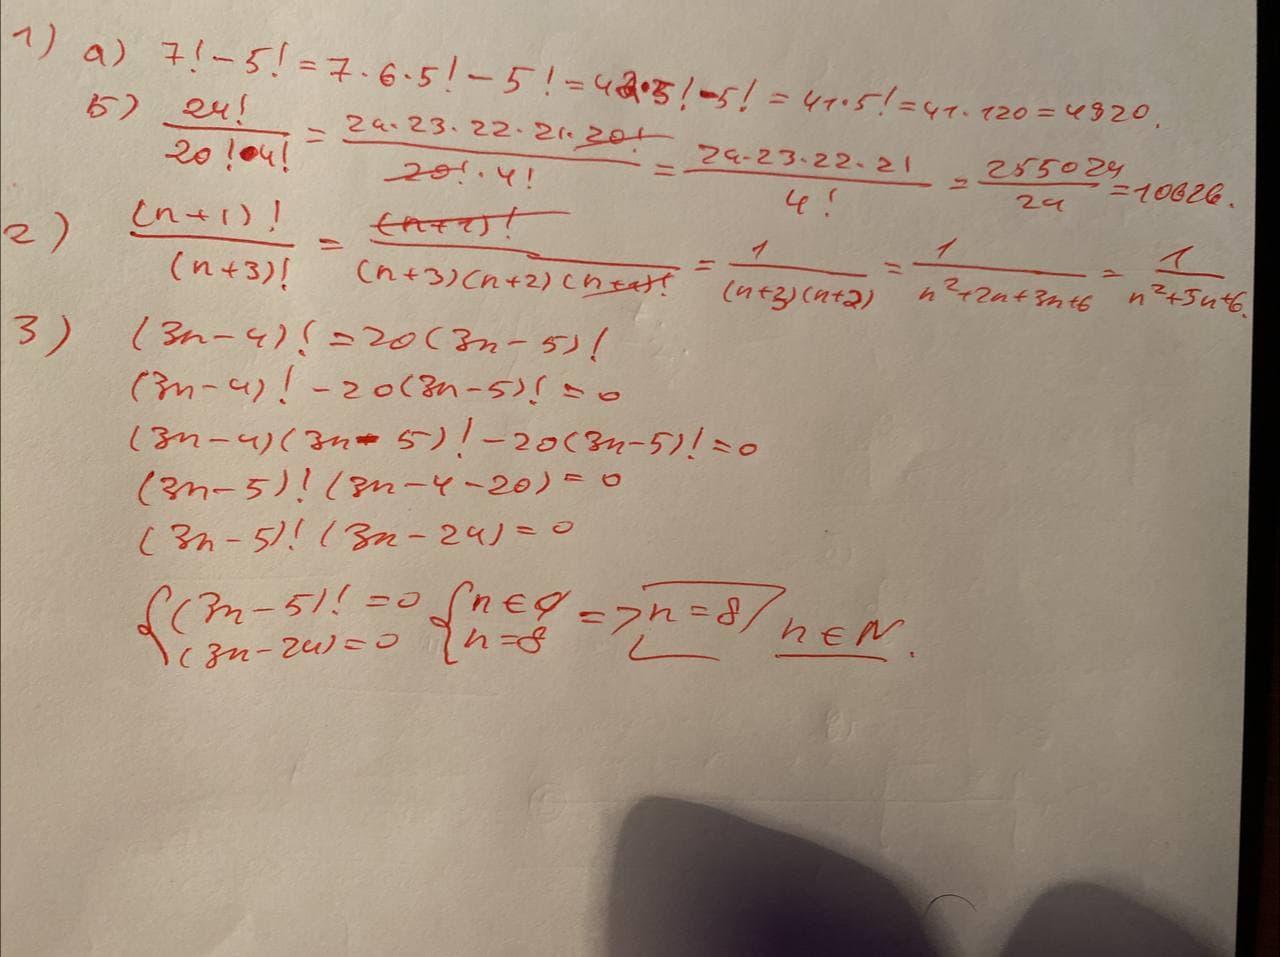 1) а) 7! - 5! = 7 · 6 · 5! - 5! = 42 · 5! - 5! = 41 · 5! = 41 · 120 = 4920.
б) 24! / 20! · 4! = 24 · 23 · 22 · 21 · 20! / 20! · 4! = 24 · 23 · 22 · 21 / 4! = 255024 / 24 = 10626.
2) (n+1)! / (n+3)! = (n+1)! / (n+3)(n+2)(n+1)! = 1 / (n+3)(n+2) = 1 / n²+2n+3n+6 = 1 / n²+5n+6.
3) (3n-4)! = 20(3n-5)!
(3n-4)! - 20(3n-5)! = 0
(3n-4)(3n-5)! - 20(3n-5)! = 0
(3n-5)! (3n-4-20) = 0
(3n-5)! (3n-24) = 0
{ (3n-5)! = 0 { n ∈ ∅ => n = 8 n ∈ N.
(3n-24) = 0 n = 8